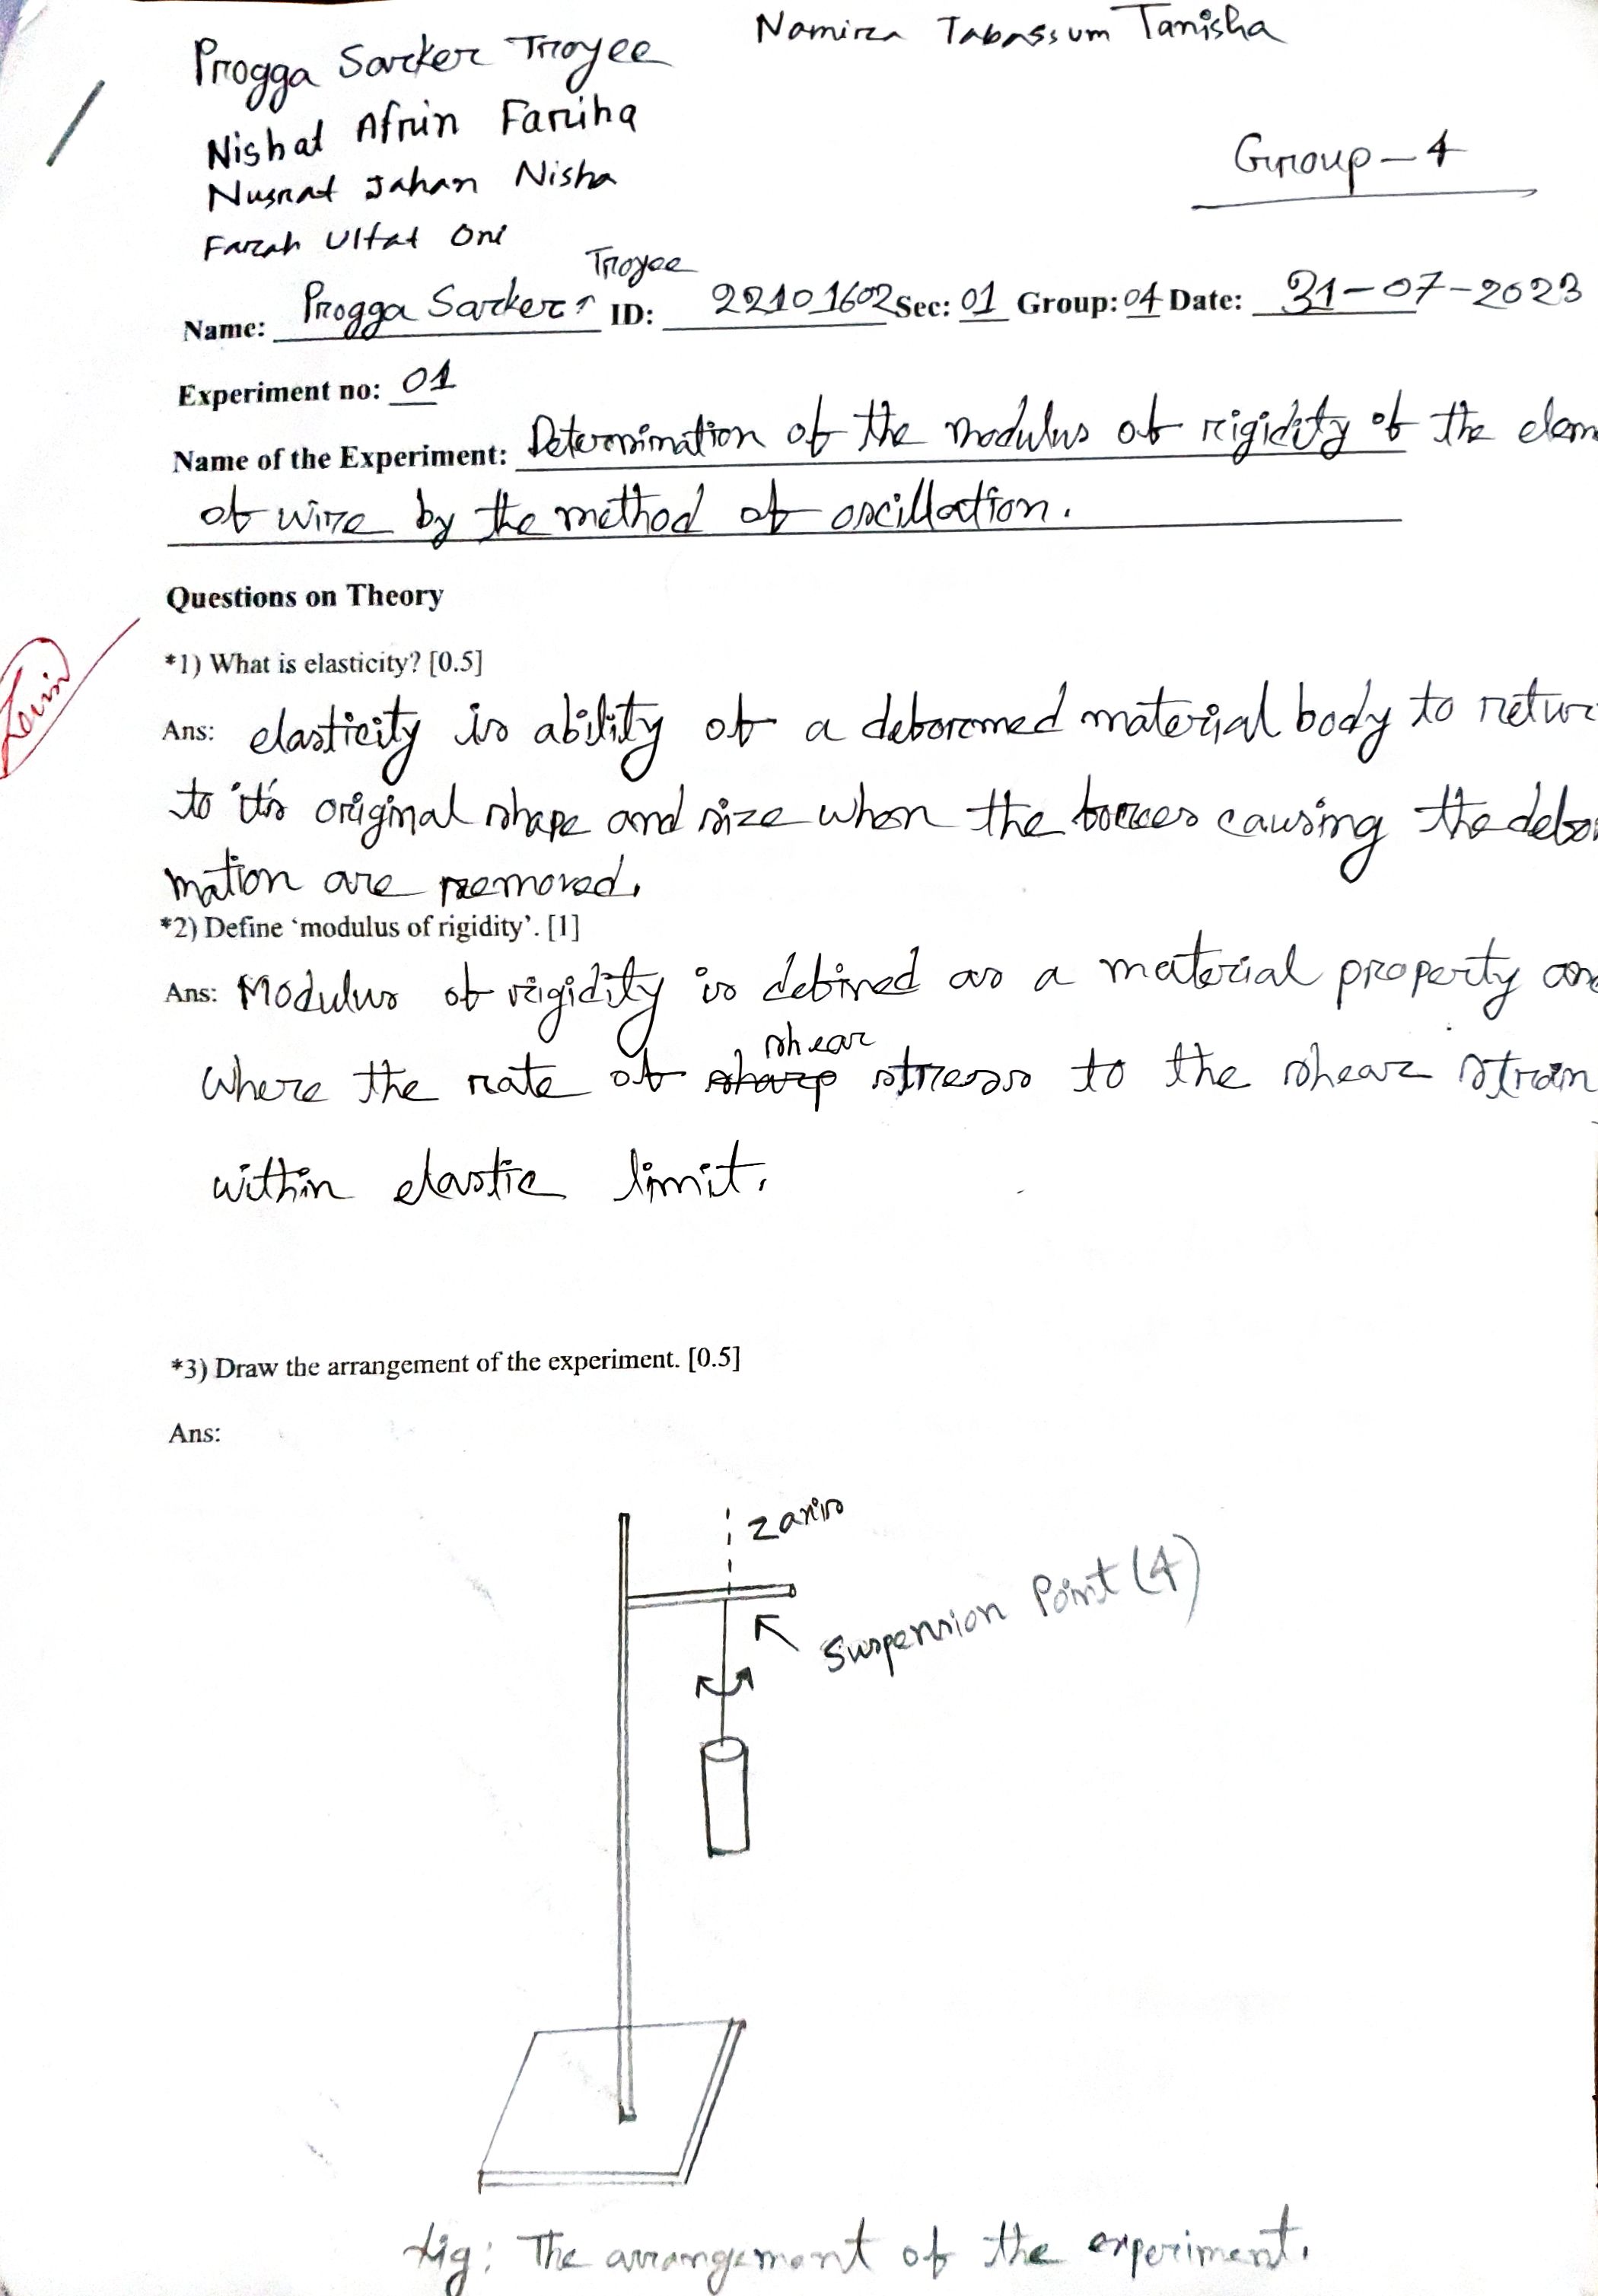 Progga Sarker Troyee
Namira Tabassum Tanisha
Nishat Afrin Fariha
Nusrat Jahan Nisha
Farah Ulfat Oni
Group-4
Troyee
Name: Progga Sarker ID: 22101602 Sec: 01 Group: 04 Date: 31-07-2023
Experiment no: 01
Name of the Experiment: Determination of the modulus of rigidity of the
of wire by the method of oscillation.
Questions on Theory
*1) What is elasticity? [0.5]
Ans: elasticity is ability of a deformed material body to retur
to it's original shape and size when the forces causing the defor
mation are removed.
*2) Define ‘modulus of rigidity’. [1]
Ans: Modulus of rigidity is defined as a material property an
shear
where the rate of sharp stress to the shear strain
within elastic limit.
*3) Draw the arrangement of the experiment. [0.5]
Ans:
z axis
Suspension Point (4)
fig: The arrangement of the experiment.